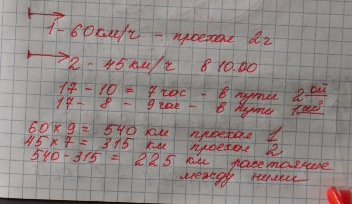 1 - 60км/ч - проехал 2г
2 - 45 км/ч в 10.00
17 - 10 = 7 час - в пути 2ой
17 - 8 - 9 час - в пути 1ый
60 × 9 = 540 км проехал 1
45 × 7 = 315 км проехал 2
540 - 315 = 225 км расстояние
между ними